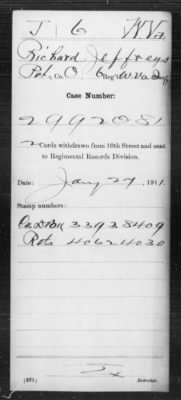 J | 6 | W.Va.
Richard Jeffreys
Pvt., Co. O, 6 Reg. W. Va. Inf.
Case Number:
2992081
2 Cards withdrawn from 10th Street and sent
to Regimental Records Division.
Date: Jany 27, 1911.
Stamp numbers:
33938409
Rolls 40624030
(673)
Searcher.